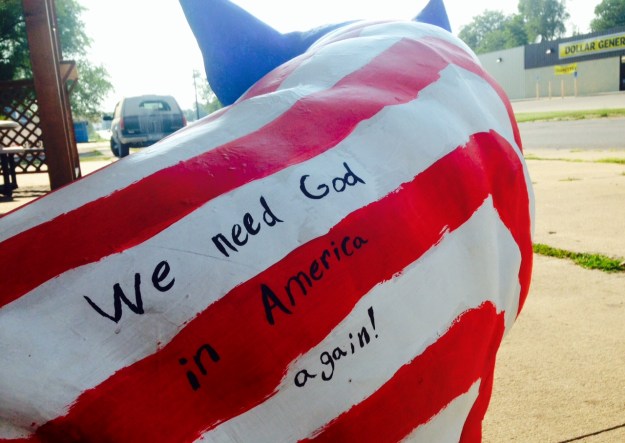 We need God
in America
again!
DOLLAR GENER